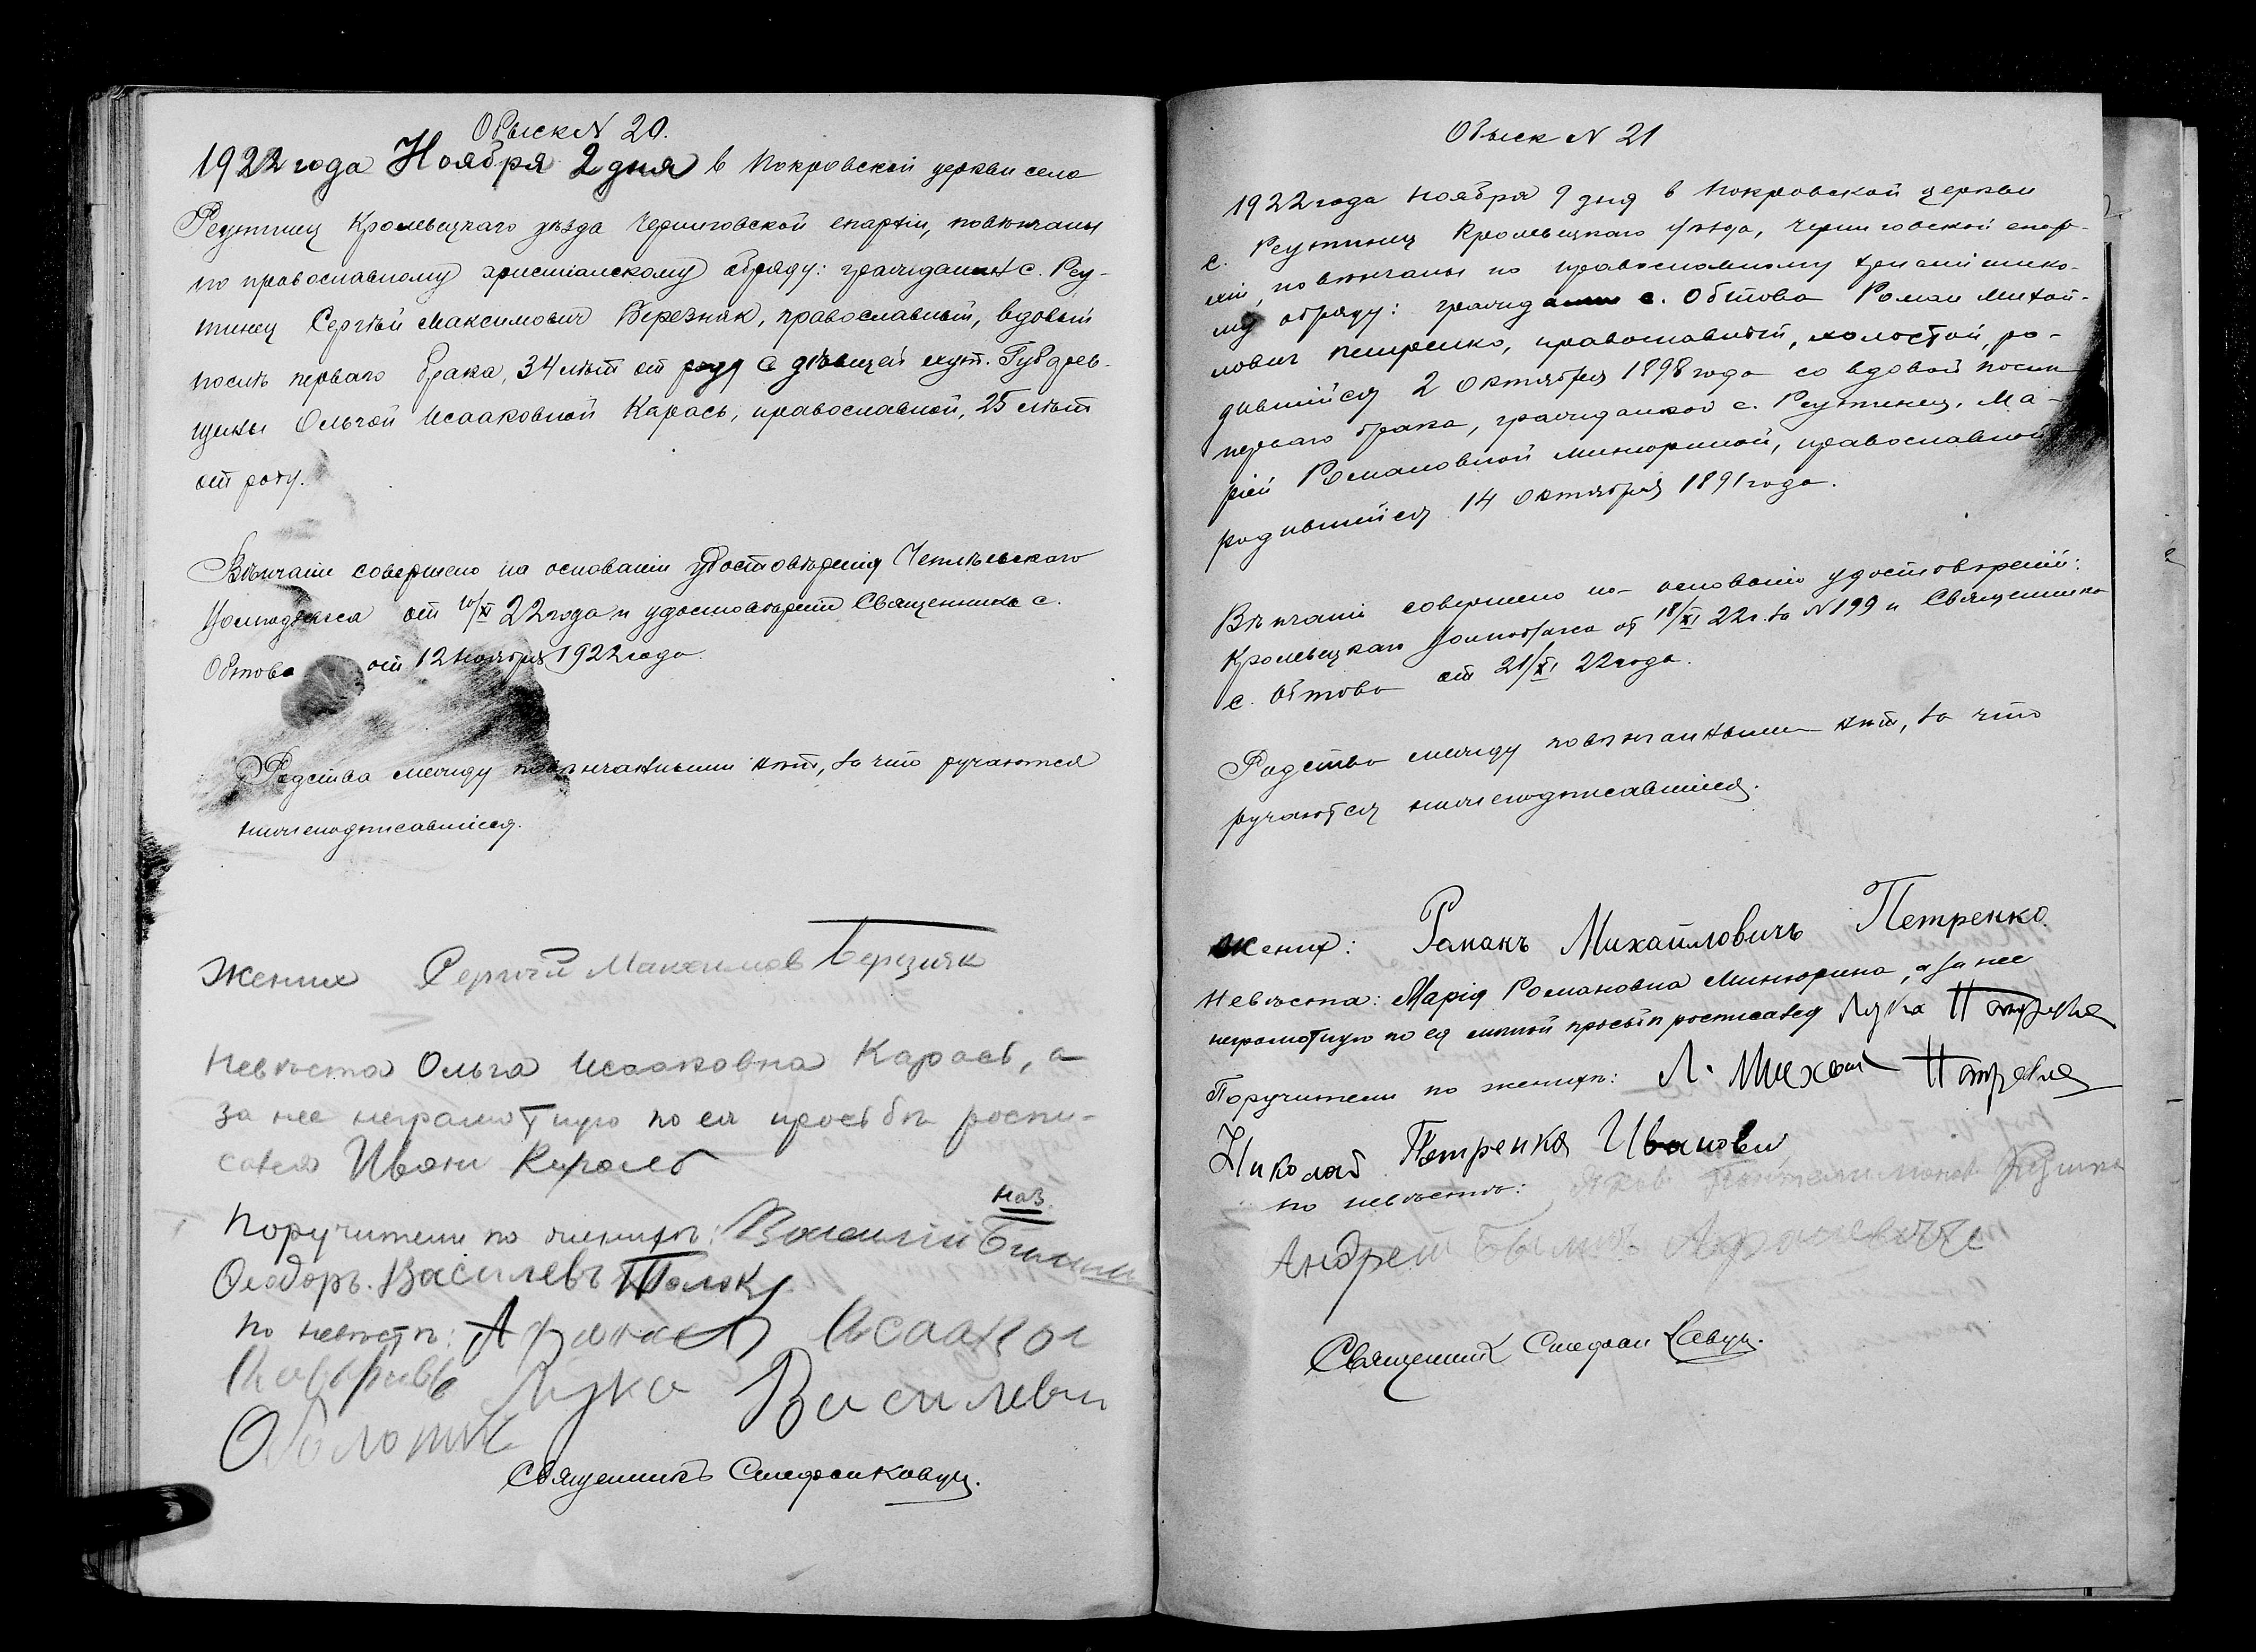 Обыск N 20.
1922 года Ноября 2 дня в Покровской церкви села
Реутинец Кролевецкаго уѣзда Черниговской епархіи, повѣнчаны
по православному христіанскому обряду: гражданин с. Реу-
тинец Сергѣй Максимович Березняк, православный, вдовый
послѣ перваго брака, 34 лѣт от роду с дѣвицей хут. Губарев-
щины Ольгой Исааковной Карась, православной, 25 лѣт
от роду.
Вѣнчаніе совершено на основаніи удостовѣренія
от 10/XI 22 года и удостовѣренія Священника с.
Обтова от 12 ноября 1922 года.
Родства между повѣнчанными нѣт, за что ручаются
нижеподписавшіеся.
Жених Сергѣй Максимов Березняк
Невѣста Ольга Исааковна Карась, а
за нее неграмотную по ея просьбѣ распи-
сался Иван
Поручители по женихѣ: Василій
Феодоръ Василевъ
по невѣстѣ: Исааков
Лука Василеви
Священникъ Стефан
Обыск N 21
1922 года Ноября 9 дня в Покровской церкви
с. Реутинец Кролевецкаго уѣзда, Черниговской епар-
хіи, повѣнчаны по православному христіанско-
му обряду: гражданин с. Обтова Роман Михай-
лович Петренко, православный, холостой, ро-
дившійся 2 Октября 1898 года со вдовой послѣ
перваго брака, гражданкой с. Реутинец, Ма-
ріей Романовной Минюриной, православной
родившийся 14 Октября 1891 года.
Вѣнчаніе совершено на основаніи удостовѣреній:
Кролевецкаго от 18/XI 22 г. за N 199 и Священника
с. Обтова от 21/XI 22 года.
Родства между повѣнчанными нѣт, за что
ручаются нижеподписавшіеся.
Жених: Раманъ Михайловичъ Петренко.
Невѣста: Марія Романовна Минюрина, а за нее
неграмотную по ея личной просьбѣ росписался Лука
Поручители по женихѣ: Л.
Николай Петренко Иванови
по невѣстѣ: Яков
Андрей
Священник Стефан